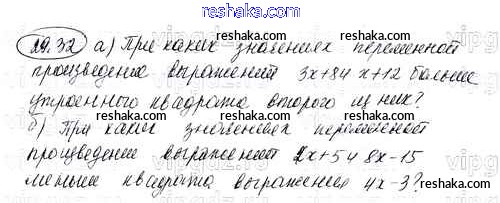 reshak.ru
29.32 а) При каких значениях переменной
произведение выражений 3x+8 и x+12 больше
утроенного квадрата второго из них?
б) При каких значениях переменной
произведение выражений 2x+5 и 8x-15
меньше квадрата выражения 4x-3?